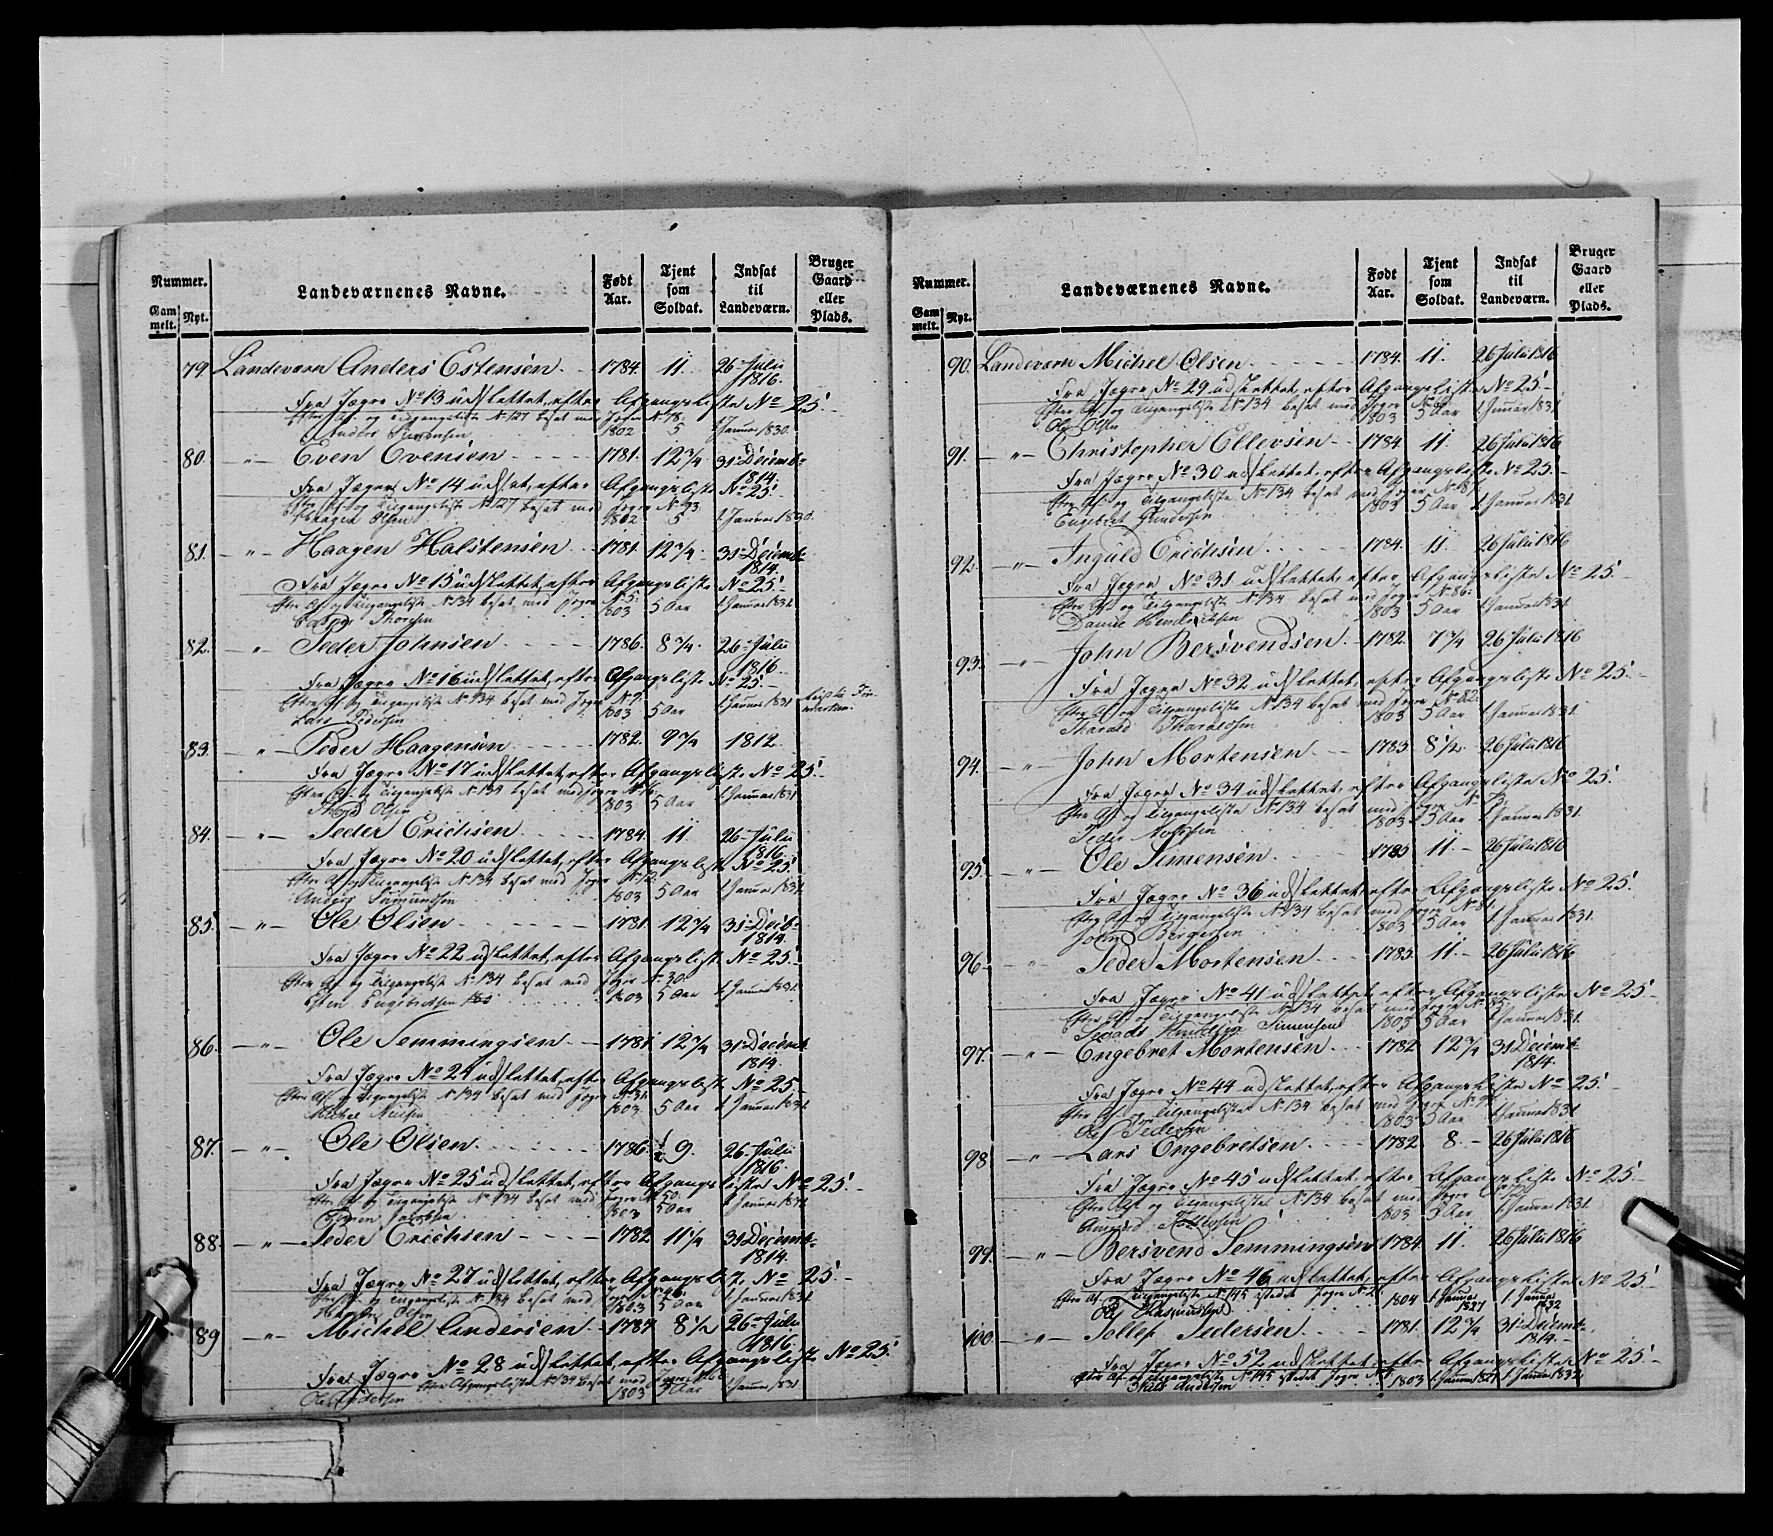 Nummer.
Gam melt. Nyt.
Landeværnenes Navne.
Født Aar.
Tjent som Soldat.
Indsat til Landeværn.
Bruger Gaard eller Plads.
79. Landeværn Anders Estensen 1784. 11. 26 Julii 1816.
Fra Jægre No 13 udslettet, efter Afgangsliste No 25.
Efter Af og Tilgangsliste No 127 besat med Jægre No 78.
Anders 1802 5 1. Januar 1830.
80. — " — Even Evensen 1781. 12 3/4 31 Decemb. 1814.
Fra Jægre No 14 uds:et, efter Afgangsliste No 25.
Efter Af og Tilgangsliste No 127 besat med Jægre No 93
Haagen Olsen 1802 5 1. Januar 1830.
81. — " — Haagen Halstensen 1781. 12 3/4 31 Decemb. 1814.
Fra Jægre No 15 udslettet, efter Afgangsliste No 25.
Efter Af og Tilgangsliste No 134 besat med Jægre No 5.
Thoresen 1803 5 Aar 1. Januar 1831.
82. " Peder Johnsen 1786. 8 3/4. 26 Julii 1816.
Fra Jægre No 16 udslettet, efter Afgangsliste No 25.
Efter Af og Tilgangsliste No 134 besat med Jægre No 9.
Lars Pedersen 1803 5 Aar 1. Januar 1831
83. — " — Peder Haagensen 1782. 9 3/4 1812.
Fra Jægre No 17 udslettet, efter Afgangsliste No 25.
Efter Af og Tilgangsliste No 134 besat med Jægre
Olsen 1803 5 Aar 1. Januar 1831
84. — " — Peder Erichsen 1784. 11. 26 Julii 1816.
Fra Jægre No 20 udslettet, efter Afgangsliste No 25.
Efter Af og Tilgangsliste No 134 besat med Jægre No 12.
Anders Simundsen 1803 5 Aar 1. Januar 1831.
85. — " — Ole Olsen 1781. 12 3/4 31 Decb. 1814.
Fra Jægre No 22 udslettet, efter Afgangsliste No 25.
Efter Af og Tilgangsliste No 134 besat med Jægre No 30.
Esten Engebretsen 1803 5 Aar 1. Januar 1831.
86. — " — Ole Semmingsen 1781. 12 3/4 31 Decemb. 1814.
Fra Jægre No 24 udslettet, efter Afgangsliste No 25.
Efter Af og Tilgangsliste No 134 besat med Jægre No 31.
Michel Nielsen 1803. 5 Aar 1. Januar 1831.
87. — " — Ole Olsen 1786. 1/2 9. 26 Julii 1816.
Fra Jægre No 25 udslettet, efter Afgangsliste No 25.
Efter Af og Tilgangsliste No 134 besat med Jægre No 50.
1803 5 Aar 1. Januar 1831
88. — " — Peder Erichsen 1782 11 1/4 31 Decemb. 1814.
Fra Jægre No 27 udslettet, efter Afgangsliste No 25.
Efter Af og Tilgangsliste No 134 besat med Jægre No 96.
Olsen 1803 5 Aar 1. Januar 1831
89 — " — Michel Andersen 1787. 8 1/2 26 Julii 1816.
Fra Jægre No 28 udslettet, efter Afgangsliste No 25.
Efter Afgangsliste No 134 besat med Jægre
Ole Pedersen 1803 5 Aar 1. Januar 1831
Nummer.
Gam melt. Nyt.
Landeværnenes Navne.
Født Aar.
Tjent som Soldat.
Indsat til Landeværn.
Bruger Gaard eller Plads.
90. Landeværn Michel Olsen 1784. 11. 26 Julii 1816
Fra Jægre No 29 udslettet, efter Afgangsliste No 25.
Efter Af og Tilgangsliste No 134 besat med Jægre
Ole Olsen 1803 5 Aar 1. Januar 1831
91. — " — Christopher Ellevsen 1784 11 26 Julii 1816
Fra Jægre No 30 udslettet, efter Afgangsliste No 25.
Efter Af og Tilgangsliste No 134 besat med Jægre No 81.
Engebret Gundersen 1803 5 Aar 1. Januar 1831
92. — " — Inguld Erichsen 1784. 11. 26 Julii 1816
Fra Jægre No 31 udslettet, efter Afgangsliste No 25.
Efter Af og Tilgangsliste No 134 besat med Jægre No 86.
Hendrichsen 1803 5 Aar 1. Januar 1831.
93. — " — John Bersvendsen 1782. 7 3/4 26 Julii 1816
Fra Jægre No 32 udslettet, efter Afgangsliste No 25.
Efter Af og Tilgangsliste No 134 besat med Jægre No 82.
Tharald Tharaldsen 1803 5 Aar 1. Januar 1831.
94. — " — John Mortensen 1783 8 1/2. 26 Julii 1816
Fra Jægre No 34 udslettet, efter Afgangsliste No 25.
Efter Af og Tilgangsliste No 134 besat med Jægre No
Peder 1803 5 Aar 1. Januar 1831.
95. " Ole Simensen 1785 11. 26 Julii 1816
Fra Jægre No 36 udslettet, efter Afgangsliste No 25.
Efter Af og Tilgangsliste No 134 besat med Jægre No 81.
John Bergersen 1803 5 Aar 1. Januar 1831.
96. " Peder Mortensen 1785. 11. 26 Julii 1816
Fra Jægre No 41 udslettet, efter Afgangsliste No 25.
Efter Af og Tilgangsliste No 134 besat med Jægre No
Simensen 1803 5 Aar 1. Januar 1831.
97. — " — Engebret Mortensen 1782 12 3/4 31 Decemb. 1814.
Fra Jægre No 44 udslettet, efter Afgangsliste No 25.
Efter Af og Tilgangsliste No 134 besat med Jægre No
Ole Pedersen 1803 5 Aar 1. Januar 1831
98 — " — Lars Engebretsen 1782 8. 26 Julii 1816
Fra Jægre No 45 udslettet, efter Afgangsliste No 25.
Efter Af og Tilgangsliste No 134 besat med Jægre
1803 5 Aar 1. Januar 1831.
99. — " — Bersvend Semmingsen 1784 11 26 Julii 1816
Fra Jægre No 46 udslettet, efter Afgangsliste No 25.
Efter Af og Tilgangsliste No 145 istedet Jægre No 2.
Ole Rasmussen 1804 1. Januar 1827 1. Januar 1832
100. — " — Tollef Pedersen 1781. 12 3/4 31 Decemb. 1814.
Fra Jægre No 52 udslettet, efter Afgangsliste No 25.
Efter Af og Tilgangsliste No 145 istedet Jægre No
Nils Andersen 1803 1. Januar 1827 1. Januar 1832